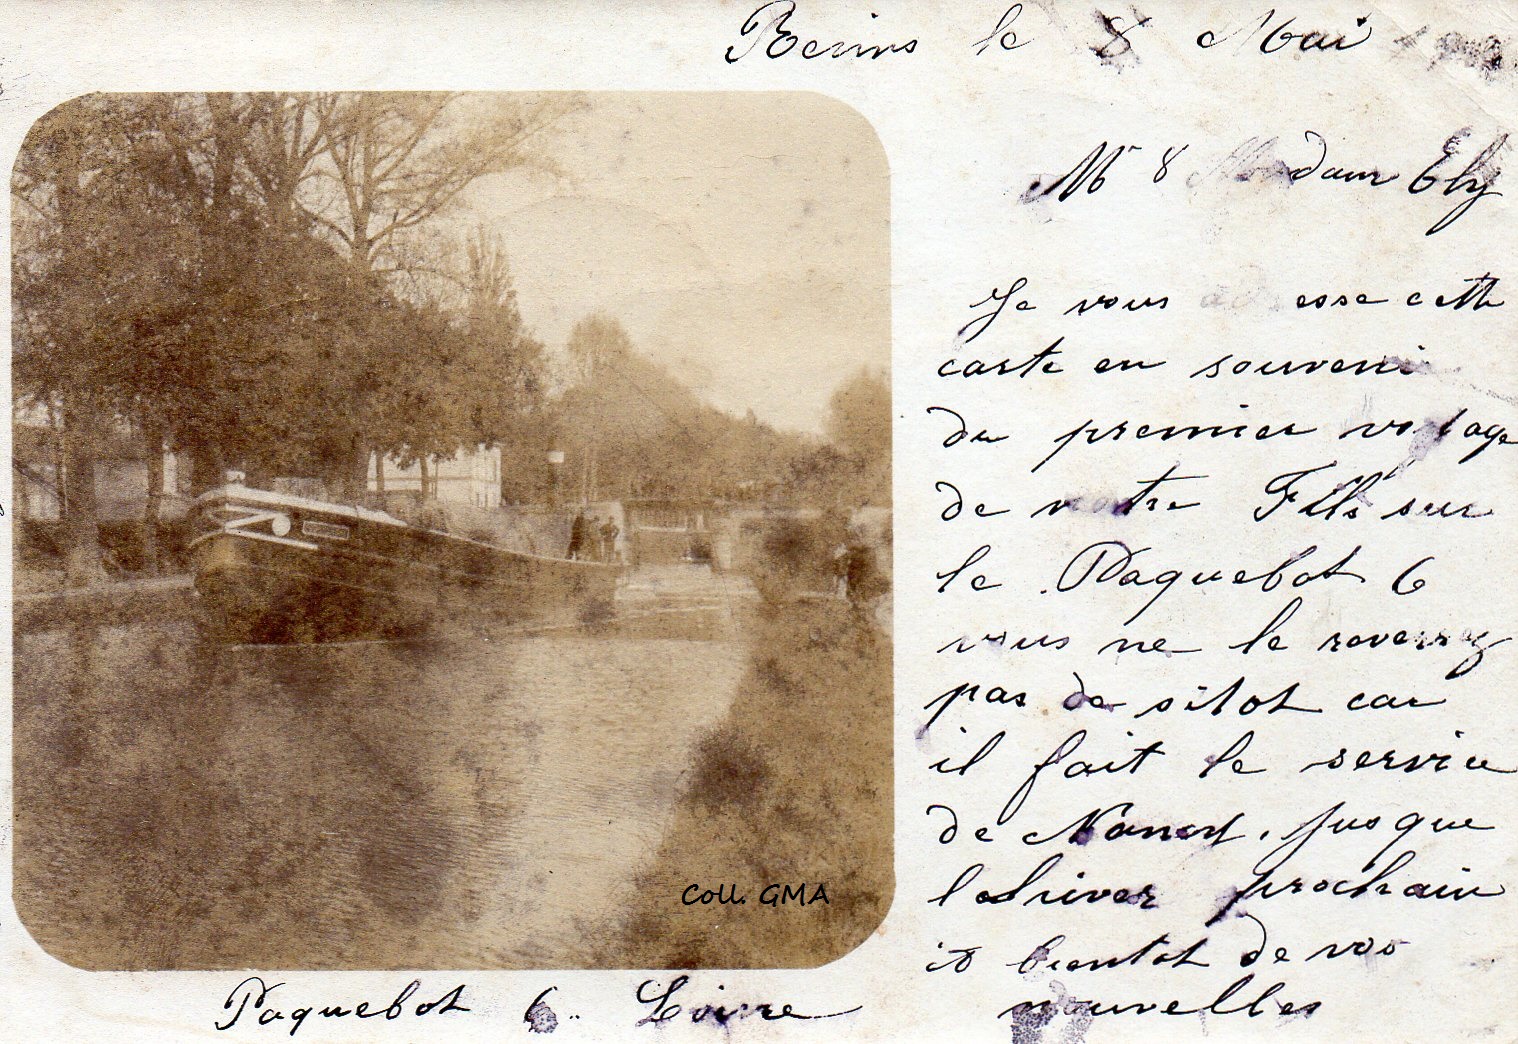 Reims le 8 Mai
Mr & Madam Ely
Je vous adresse cette
carte en souveni
du premier voyage
de votre Fils sur
le Paquebot 6
vous ne le reverrez
pas de sitot car
il fait le service
de Nancy. jusque
l hiver prochain
à bientot de vos
nouvelles
Coll. GMA
Paquebot 6. Loivre